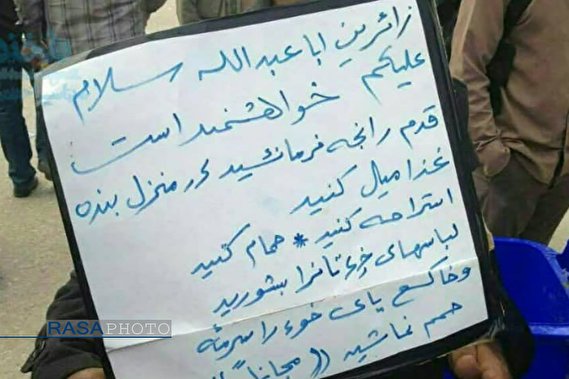 زائرین ابا عبدالله سلام
علیکم خواهشمند است
قدم رانجه فرمائید در منزل بنده
غذا میل کنید
استراحه کنید * حمام کنید
لباسهای خوء تانرا بشورید
و خاک پای خوء را سرمه
حمم نماشید (( مجاناً
RASAPHOTO